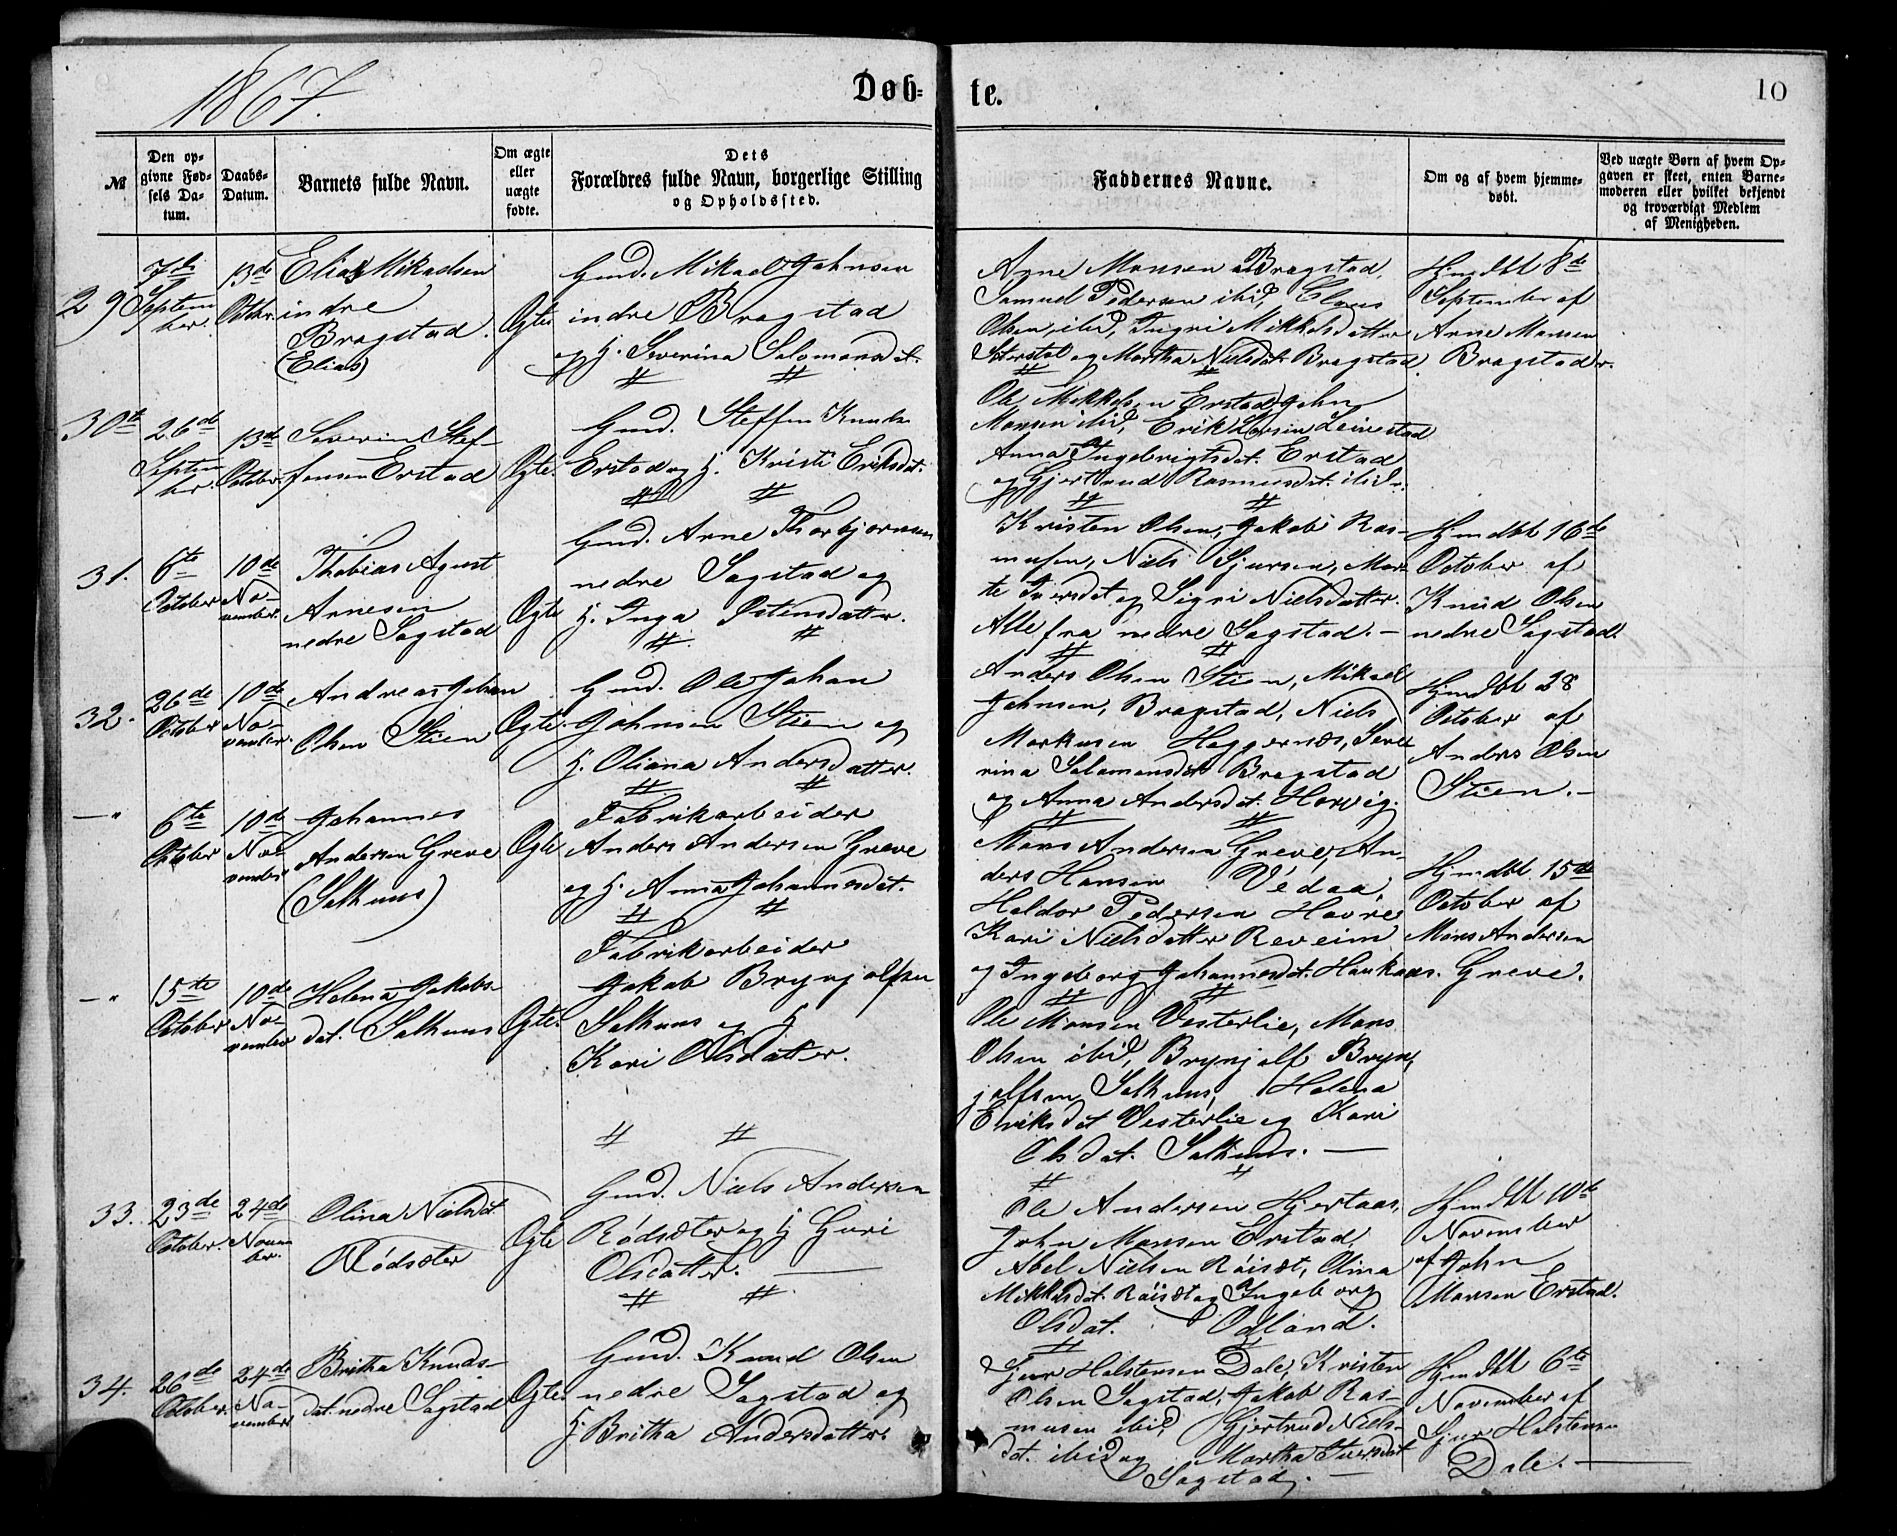 1867.
Døb=
te.
10
№
Den op-
givne Fød-
sels Da-
tum.
Daabs-
Datum.
Barnets fulde Navn.
Om ægte
eller
uægte
fødte.
Dets
Forældres fulde Navn, borgerlige Stilling
og Opholdssted.
Faddernes Navne.
Om og af hvem hjemme-
døbt.
Ved uægte Børn af hvem Op-
gaven er skeet, enten Barne-
moderen eller hvilket bekjendt
og troværdigt Medlem
af Menigheden.
29
7de
Septem
ber.
13de
Octbr.
Elias Mikaelsen
indre
Bragstad.
(Elias)
Ægte
Gmd. Mikael Johnsen
indre Bragstad
og H. Severina Salomonsdat.
Arne Monsen Bragstad,
Samuel Pedersen ibid,
Olsen, ibid, Ingri Mikkelsdatter
og Martha Nielsdat. Bragstad
Hjmdbt 8de
September af
Arne Monsen
Bragstad.
30te
26de
Septem
ber.
13de
October.
Severin Stef-
fensen Erstad
Ægte.
Gmd. Steffen Knuds.
Erstad og H. Kristi Eriksdat.
Ole Mikkelsen Erstad, John
Monsen ibid, Erik Larsen Leirestad
Anna Ingebrigtsdat. Erstad
og Gjertrud Rasmusdat. ibid.
31.
6te
October
10de
No-
vember.
Thobias Agust
Arnesen
nedre Sagstad
Ægte
Gmd. Arne Thorbjørnsen
nedre Sagstad og
H. Inga Østensdatter.
Kristen Olsen, Jakob Ras-
musen, Niels Sjursen, Mar-
te Iversdat. og Sigri Nielsdatter.
Alle fra nedre Sagstad. -
Hjmdbt 16de
October af
Knud Olsen
nedre Sagstad.
32.
26de
October
10de
No-
vember.
Andreas Johan
Olsen Stien
Ægte.
Gmd. Ole Johan
Johnsen Stien og
H. Oliana Andersdatter.
Anders Olsen Stien, Mikael
Johnsen, Bragstad, Niels
Markusen Haggernæs, Seve
rina Salamonsdat Bragstad
og Anna Andersdat. Horvig.
Hjmdbt 28
October af
Anders Olsen
Stien. -
— "
6te
October
10de
No-
vember
Johannes
Andersen Greve
(Salhuus)
Ægte
Fabrikarbeider
Anders Andersen Greve
og H. Anna Johannesdat.
Mons Andersen Greve, An-
ders Hansen Vedaa,
Haldor Pedersen Havre
Kari Nielsdatter Reveim
og Ingeborg Johannesdat. Haukaas.
Hjmdbt. 15de
October af
Mons Andersen
Greve.
— "
15te
October
10de
No-
vember
Helena Jakobs-
dat. Salhuus
Ægte.
Fabrikarbeider
Jakob Brynjolfsen
Salhuus og H
Kari Olsdatter.
Ole Monsen Vesterlie, Mons
Olsen ibid, Brynjolf Bryn-
jolfsen Salhuus, Helena
Eriksdat Vesterlie og Kari
Olsdat. Salhuus. —
33.
23de
October.
24de
Novem
ber.
Olina Nielsdat.
Rødsæter
Ægte
Gmd. Niels Andersen
Rødsæter og H Guri
Olsdatter. —
Ole Andersen Hjertaas,
John Monsen Erstad
Abel Nielsen Røisæt, Olina
Mikkelsdat. Røisæt og Ingeborg
Olsdat. Odland.
Hjmdbt 10de
November
af John
Monsen Erstad.
34.
26de
October.
24de
No-
vember
Britha Knuds-
dat. nedre Sagstad
Ægte
Gmd. Knud Olsen
nedre Sagstad og
H. Britha Andersdatter.
Sjur Halstensen Dale, Kristen
Olsen Sagstad, Jakob Ras-
musen ibid, Gjertrud Niels-
dat. ibid og Martha Iversdat
Sagstad. —
Hjmdbt 6te
November af
Sjur Halstensen
Dale. —